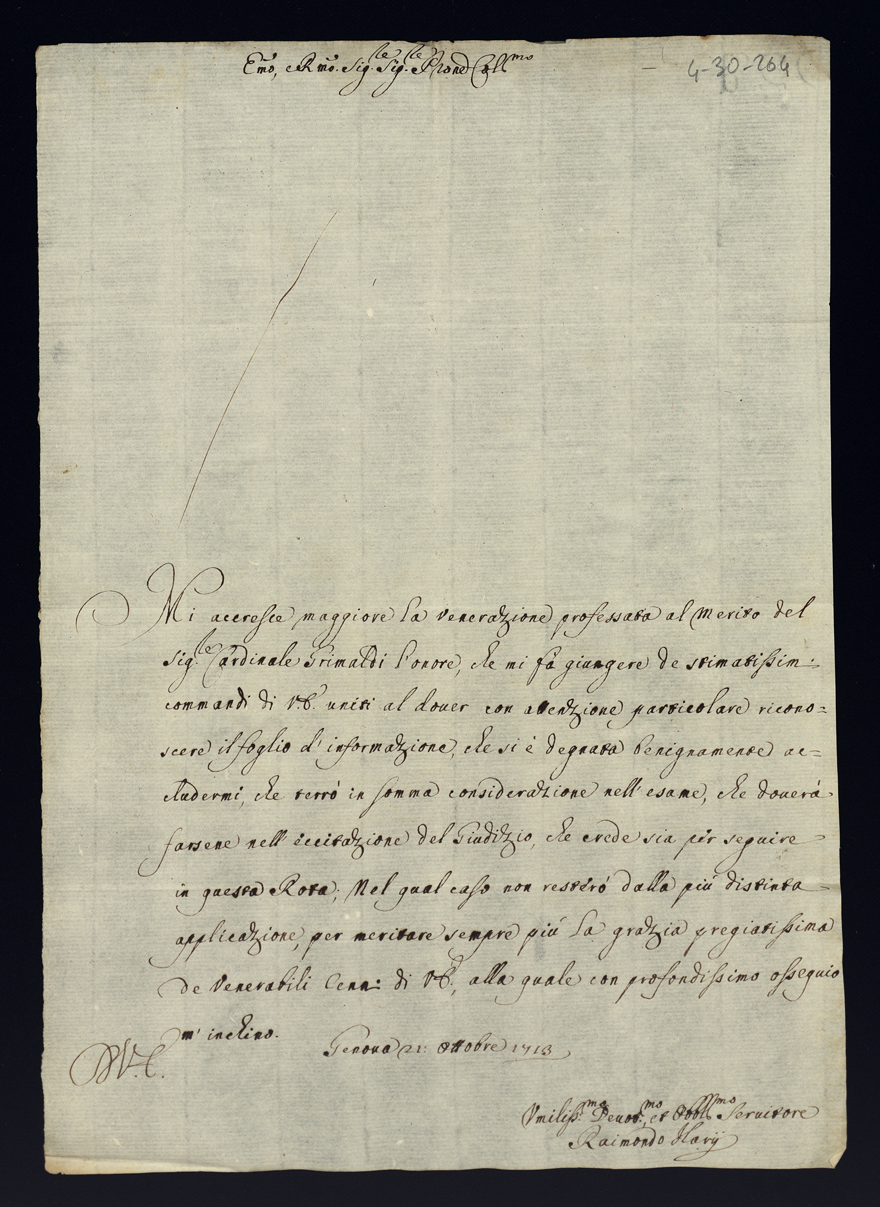 Emo, e Rmo. Sig.le Sig.le Prone Coll.mo
4-30-264
Mi accresce maggiore la venerazione professata al Merito del
Sig.le Cardinale Grimaldi l'onore, che mi fà giungere de stimatissim:
commandi di V.E. uniti al dover con attenzione particolare ricono=
scere il foglio d'informazione, che si è degnata benignamente ac=
cludermi, che terrò in somma considerazione nell'esame, che doverà
farsene nell'eccitazione del Giudizio, che crede sia per seguire
in questa Rota; Nel qual caso non restrò dalla più distinta
applicazione, per meritare sempre più la grazia pregiatissima
de Venerabili Cenn: di V.E., alla quale con profondissimo ossequio
m'inchino.
Genova 21: Ottobre 1713
Umiliss.mo Devot.mo et Obbl.mo Servitore
Raimondo